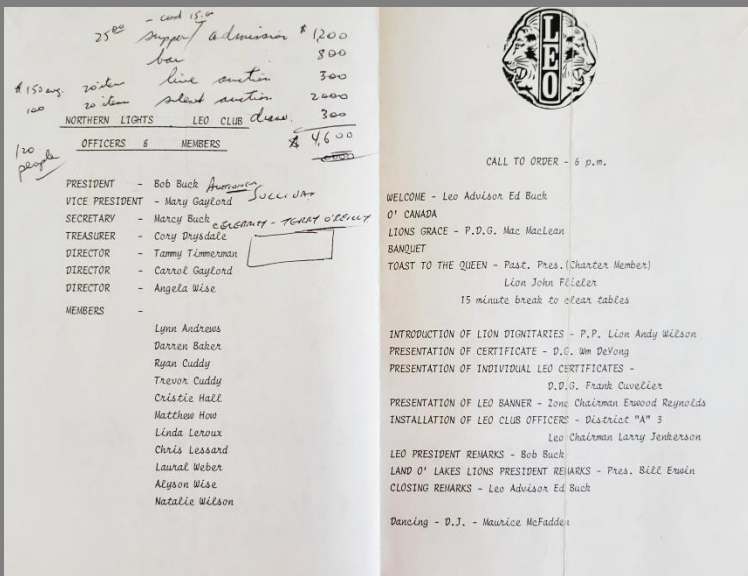 - cost 15.00
25.00 supper / admission $ 1200
bar 800
$150 avg. 20 item live auction 300
100 20 item silent auction 2000
NORTHERN LIGHTS LEO CLUB 300
$ 4,600
120 people
OFFICERS & MEMBERS
PRESIDENT - Bob Buck
VICE PRESIDENT - Mary Gaylord SULLIVAN
SECRETARY - Marcy Buck CELEBRITY - TERRY O'REILLY
TREASURER - Cory Drysdale
DIRECTOR - Tammy Timmerman
DIRECTOR - Carrol Gaylord
DIRECTOR - Angela Wise
MEMBERS -
Lynn Andrews
Darren Baker
Ryan Cuddy
Trevor Cuddy
Cristie Hall
Matthew How
Linda Leroux
Chris Lessard
Laural Weber
Alyson Wise
Natalie Wilson
LEO
CALL TO ORDER - 6 p.m.
WELCOME - Leo Advisor Ed Buck
O' CANADA
LIONS GRACE - P.D.G. Mac MacLean
BANQUET
TOAST TO THE QUEEN - Past. Pres.(Charter Member)
Lion John Flieler
15 minute break to clear tables
INTRODUCTION OF LION DIGNITARIES - P.P. Lion Andy Wilson
PRESENTATION OF CERTIFICATE - D.G. Wm DeYong
PRESENTATION OF INDIVIDUAL LEO CERTIFICATES -
D.D.G. Frank Cuvelier
PRESENTATION OF LEO BANNER - Zone Chairman Erwood Reynolds
INSTALLATION OF LEO CLUB OFFICERS - District "A" 3
Leo Chairman Larry Jenkerson
LEO PRESIDENT REMARKS - Bob Buck
LAND O' LAKES LIONS PRESIDENT REMARKS - Pres. Bill Erwin
CLOSING REMARKS - Leo Advisor Ed Buck
Dancing - D.J. - Maurice McFadden